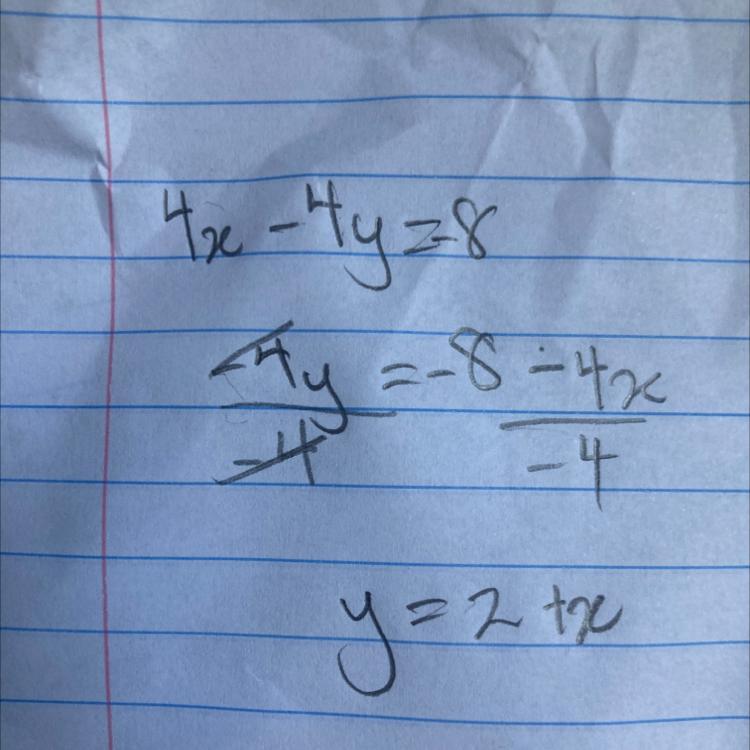 4x - 4y = -8
-4y = -8 - 4x
-4 -4
y = 2 + x